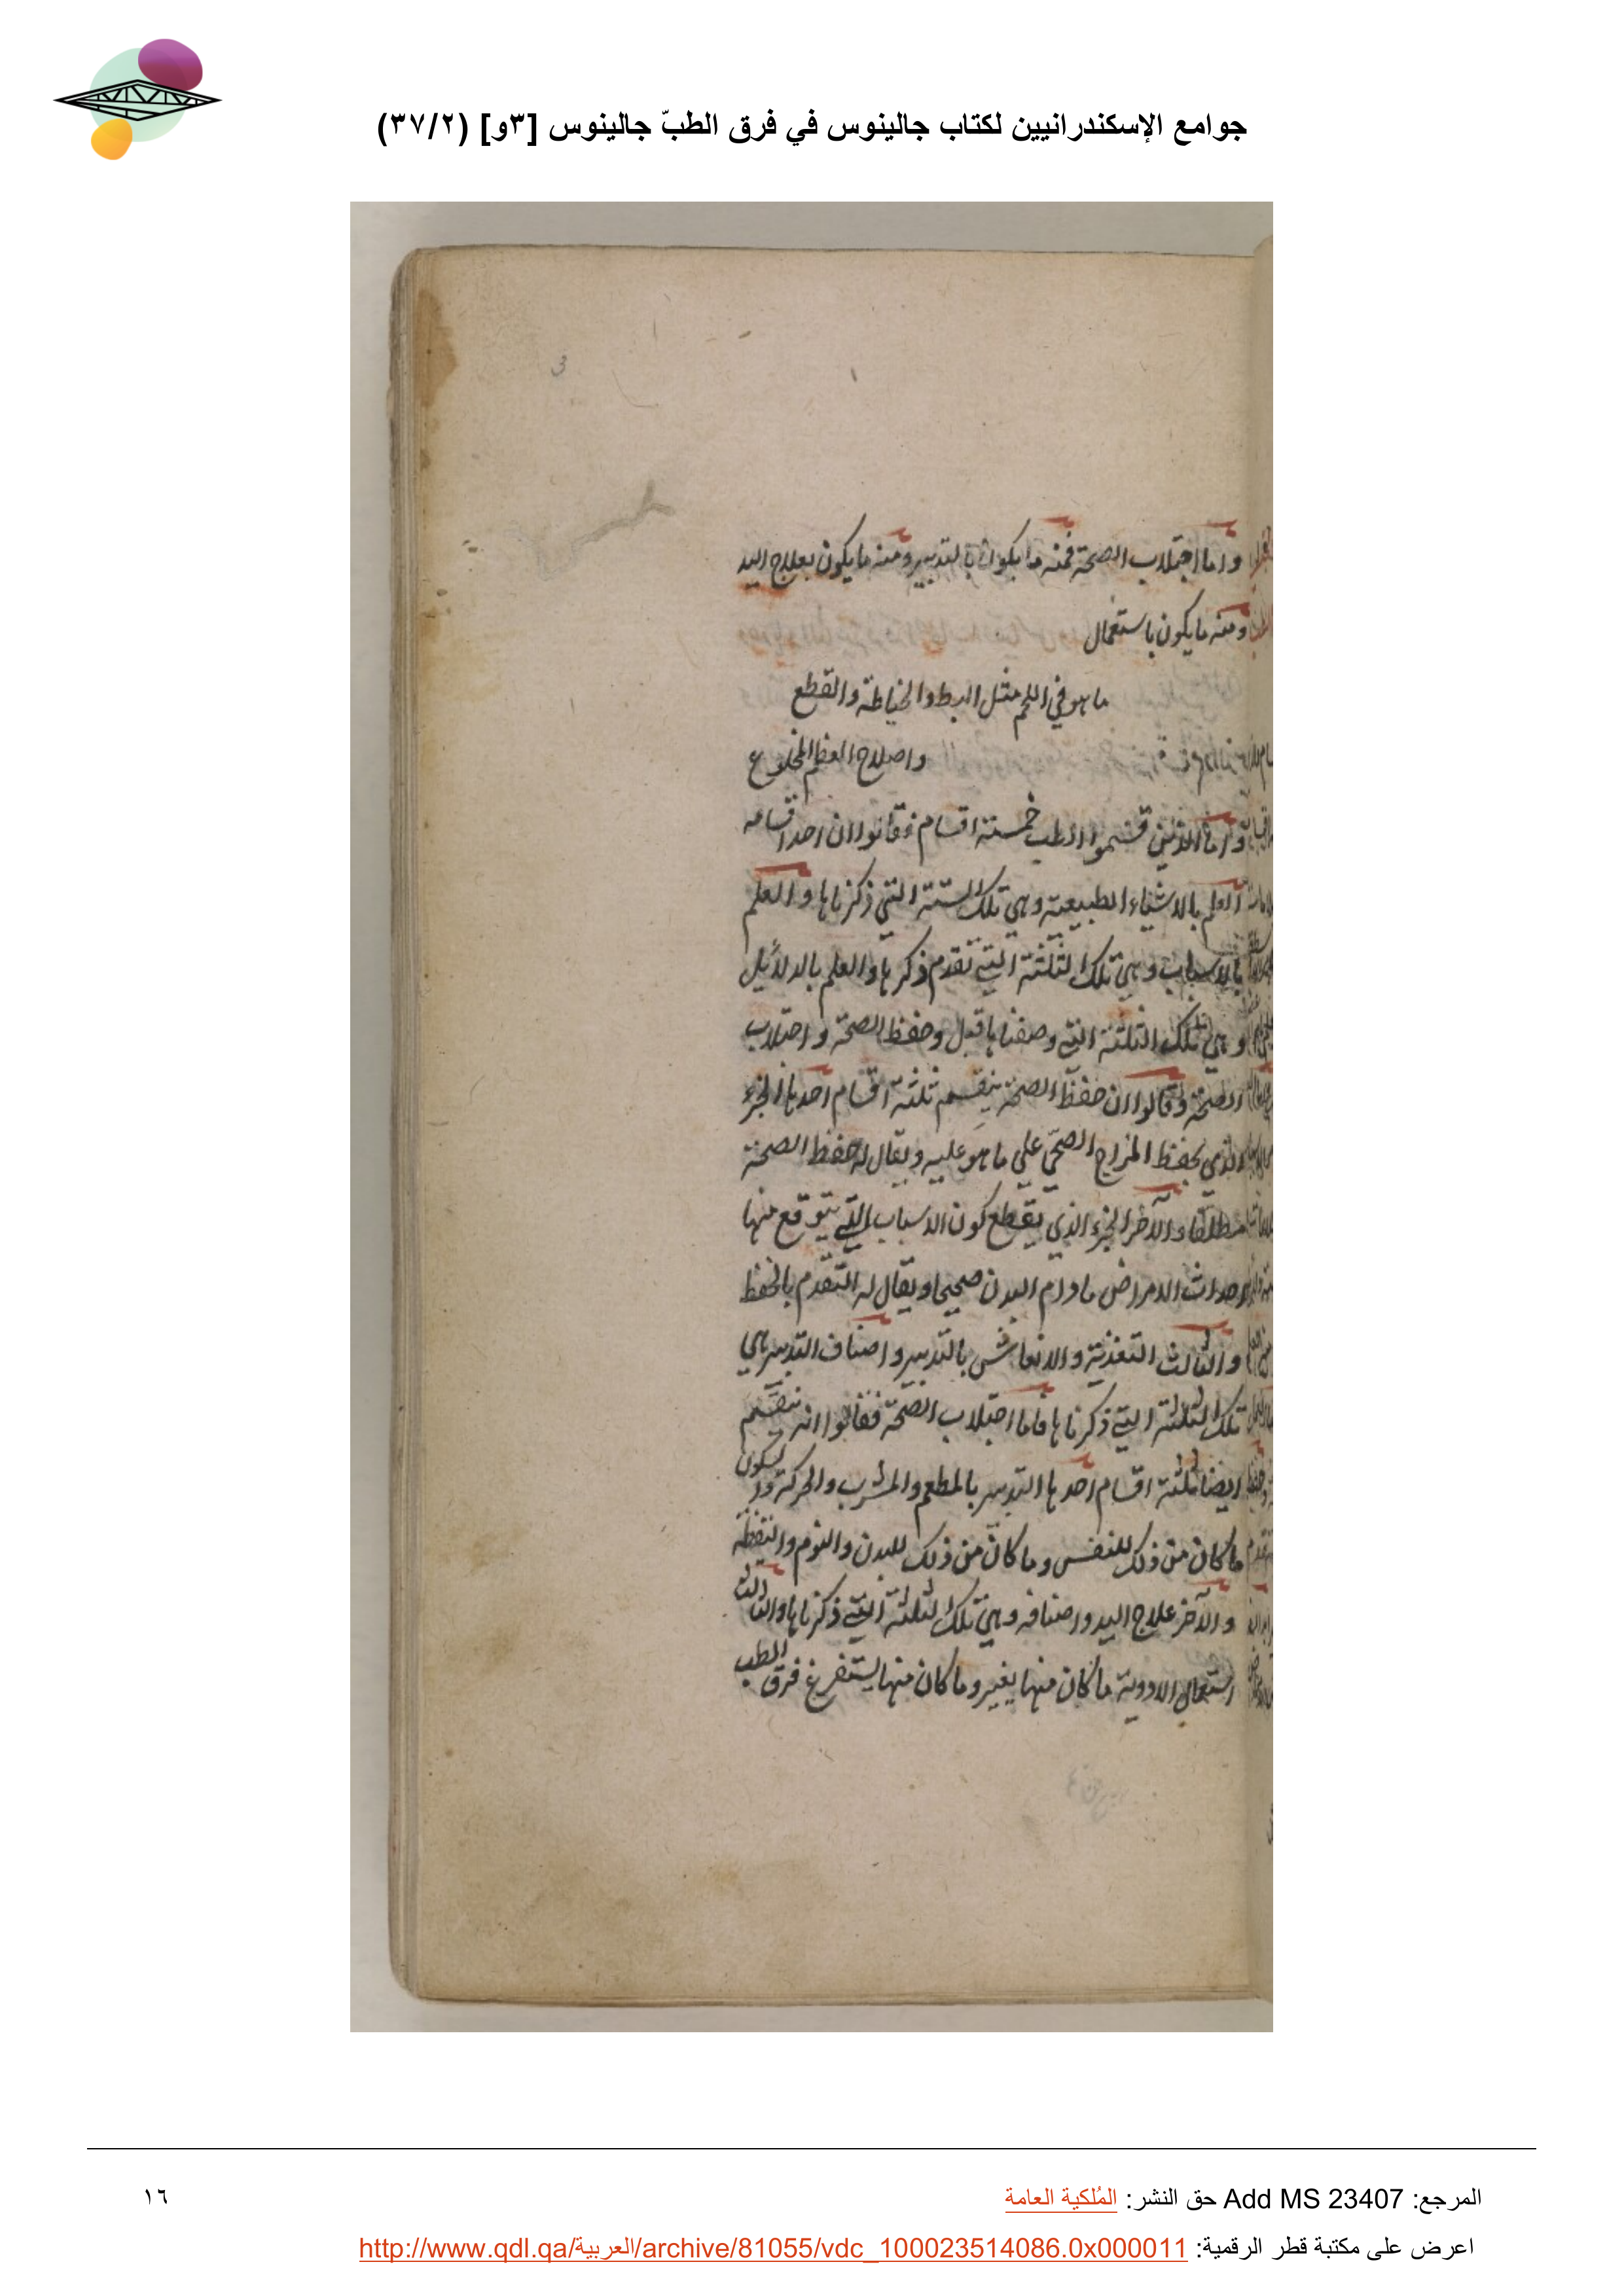 جوامع الإسكندرانيين لكتاب جالينوس في فرق الطبّ جالينوس [٣و] (٣٧/٢)
3
واما اجتلاب الصحة فمنه ما يكون بالتدبير ومنه ما يكون بعلاج اليد
ومنه ما يكون باستعمال
ما هو في اللحم مثل البط والخياطة والقطع
واصلاح العظم المخلوع
واما الذين قسموا الطب خمسة اقسام فقالوا ان احد اقسامه
العلم بالاشياء الطبيعية وهي تلك الستة التي ذكرناها والعلم
بالاسباب وهي تلك الثلثة التي تقدم ذكرها والعلم بالدلائل
وهي تلك الثلثة التي وصفناها قبل وحفظ الصحة واجتلاب
الصحة وقالوا ان حفظ الصحة ينقسم ثلثة اقسام احدها الجزء
الذي يحفظ المزاج الصحي على ما هو عليه ويقال له حفظ الصحة
مطلقا والآخر الجزء الذي يقطع كون الاسباب التي يتوقع منها
احداث الامراض ما دام البدن صحيحا ويقال له التقدم بالحفظ
والثالث التغذية والانعاش بالتدبير واصناف التدبير هي
تلك الثلثة التي ذكرناها فاما اجتلاب الصحة فقالوا انه ينقسم
ايضا ثلثة اقسام احدها التدبير بالمطعم والمشرب والحركة والسكون
ما كان من ذلك للنفس وما كان من ذلك للبدن والنوم واليقظة
والآخر علاج اليد واصنافه وهي تلك الثلثة التي ذكرناها والثالث
استعمال الادوية ما كان منها يغير وما كان منها يستفرغ فرق الطب
المرجع: Add MS 23407 حق النشر: المُلكية العامة
١٦
اعرض على مكتبة قطر الرقمية: http://www.qdl.qa/العربية/archive/81055/vdc_100023514086.0x000011